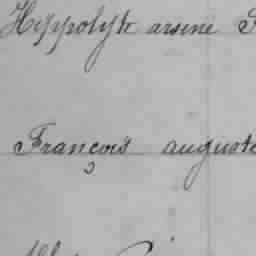 Hyppolyte arsene
François auguste